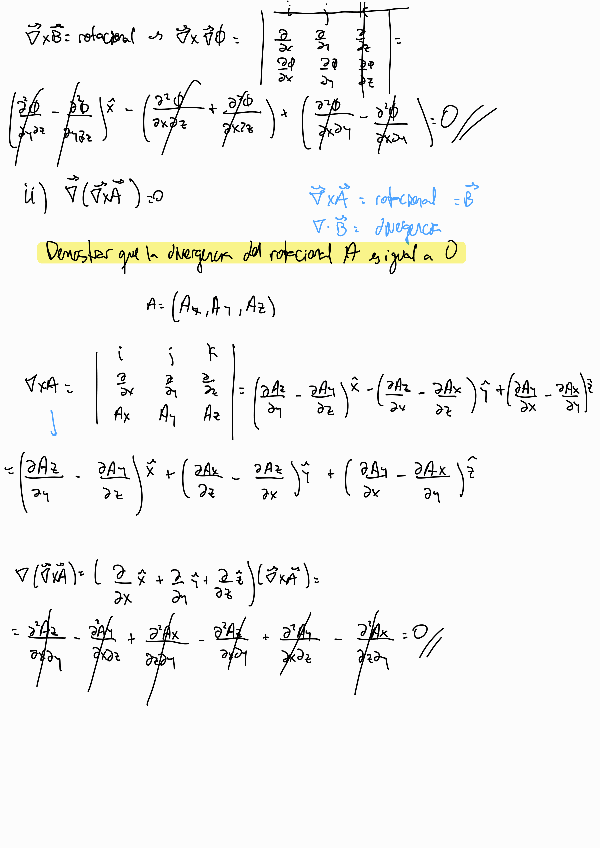 ∇⃗×B⃗ = rotacional → ∇⃗×∇⃗ϕ = | i j k | ∂/∂x ∂/∂y ∂/∂z | ∂ϕ/∂x ∂ϕ/∂y ∂ϕ/∂z | =
(∂²ϕ/∂y∂z - ∂²ϕ/∂y∂z) x̂ - (∂²ϕ/∂x∂z + ∂²ϕ/∂x∂z) + (∂²ϕ/∂x∂y - ∂²ϕ/∂x∂y) = 0 //
ii) ∇⃗(∇⃗×A⃗) = 0
∇⃗×A⃗ = rotacional = B⃗
∇·B⃗ = divergencia
Demostrar que la divergencia del rotacional A es igual a 0
A = (Ax, Ay, Az)
∇×A = | i j k | ∂/∂x ∂/∂y ∂/∂z | Ax Ay Az | = (∂Az/∂y - ∂Ay/∂z) x̂ - (∂Az/∂x - ∂Ax/∂z) ŷ + (∂Ay/∂x - ∂Ax/∂y) ẑ
= (∂Az/∂y - ∂Ay/∂z) x̂ + (∂Ax/∂z - ∂Az/∂x) ŷ + (∂Ay/∂x - ∂Ax/∂y) ẑ
∇(∇⃗×A⃗) = (∂/∂x x̂ + ∂/∂y ŷ + ∂/∂z ẑ)(∇⃗×A⃗) =
= ∂²Az/∂x∂y - ∂²Ay/∂x∂z + ∂²Ax/∂z∂y - ∂²Az/∂x∂y + ∂²Ay/∂x∂z - ∂²Ax/∂z∂y = 0 //